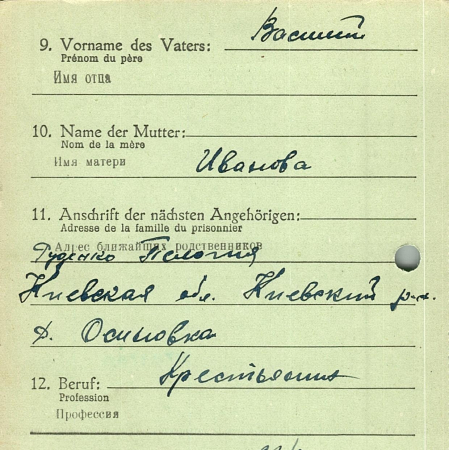 9. Vorname des Vaters: Василий
Prénom du père
Имя отца
10. Name der Mutter:
Nom de la mère
Имя матери Иванова
11. Anschrift der nächsten Angehörigen:
Adresse de la famille du prisonnier
Адрес ближайших родственников
Руденко Пелогия
Киевская обл. Киевский р-н.
д. Осиповка
12. Beruf: Крестьянин
Profession
Профессия